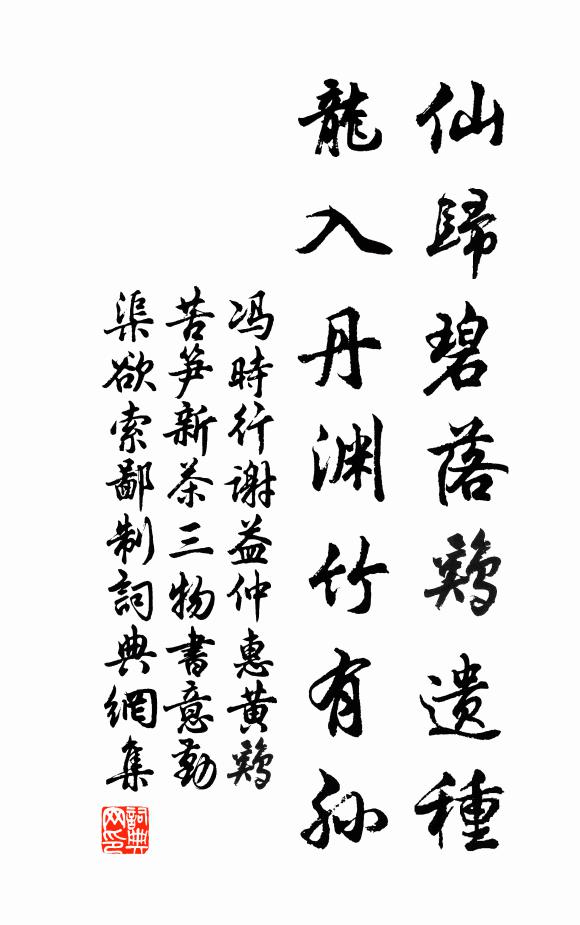 仙歸碧落鷄遺種
龍入丹渊竹有孙
冯時行谢益仲惠黄鷄
苦笋新茶三物書意勤
渠欲索鄙制詞典網集
詞典网印